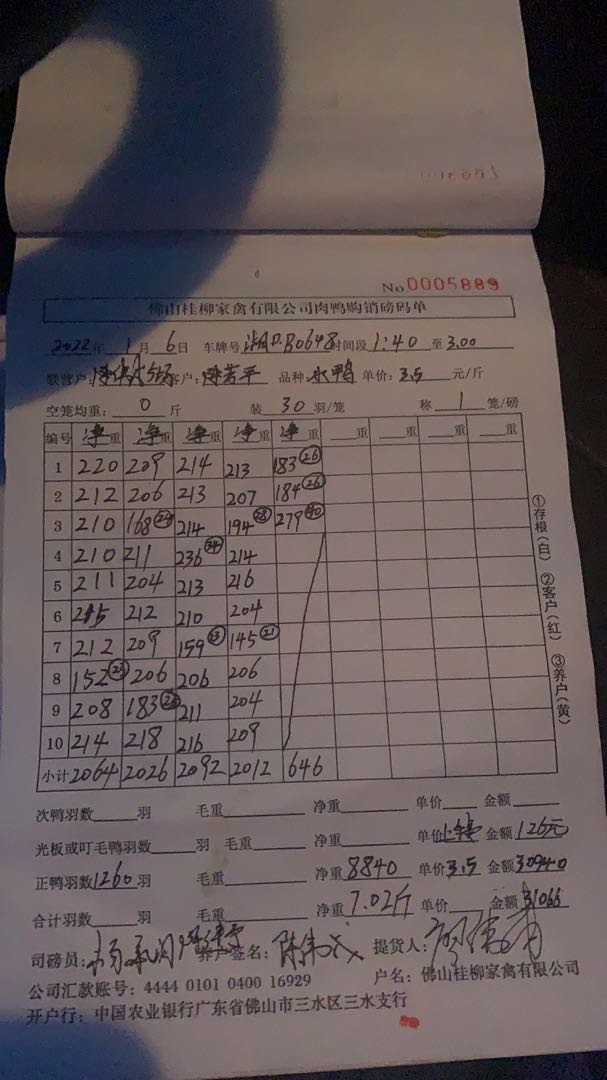 No.0005889
佛山桂柳家禽有限公司肉鸭购销磅码单
2022年 1月 6日 车牌号 湘D.B0648 时间段 1:40 至 3.00
联营户: 客户: 陈若平 品种: 水鸭 单价: 3.5 元/斤
空笼均重: 0 斤 装 30 羽/笼 称 1 笼/磅
编号 净重 净重 净重 净重 净重 重 重 重 重
1 220 209 214 213 183(26)
2 212 206 213 207 184(26)
3 210 168(24) 214 194(28) 279(40)
4 210 211 236(34) 214
5 211 204 213 216
6 215 212 210 204
7 212 209 159(23) 145(21)
8 152(23) 206 206 206
9 208 183 211 204
10 214 218 216 209
小计 2064 2026 2092 2012 646
①存根(白) ②客户(红) ③养户(黄)
次鸭羽数 羽 毛重 净重 单价 金额
光板或叮毛鸭羽数 羽 毛重 净重 单价 金额 126元
正鸭羽数 1260 羽 毛重 净重 8840 单价 3.5 金额 30940
合计羽数 羽 毛重 净重 7.02斤 单价 金额 31066
司磅员: 养户签名: 陈伟成 提货人:
公司汇款账号: 4444 0101 0400 16929 户名: 佛山桂柳家禽有限公司
开户行: 中国农业银行广东省佛山市三水区三水支行